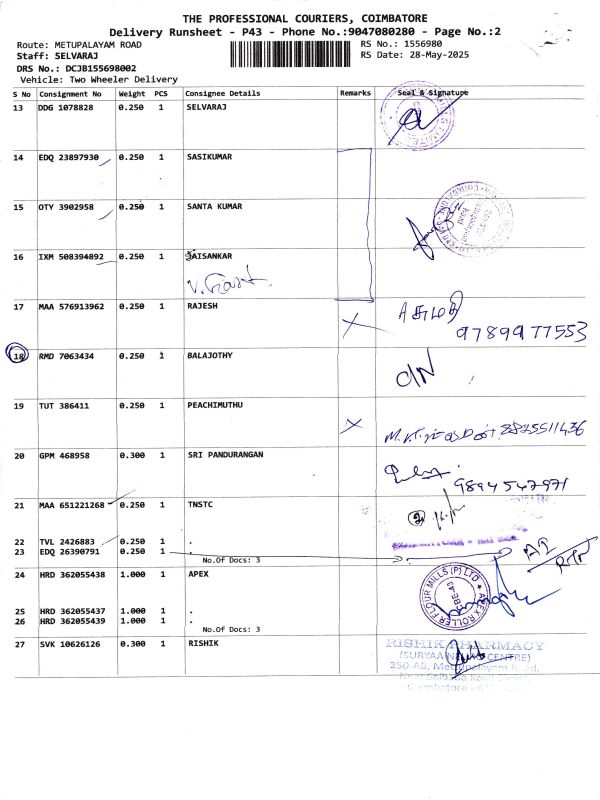 THE PROFESSIONAL COURIERS, COIMBATORE
Delivery Runsheet - P43 - Phone No.:9047080280 - Page No.:2
Route: METUPALAYAM ROAD
RS No.: 1556980
Staff: SELVARAJ
RS Date: 28-May-2025
DRS No.: DCJB155698002
Vehicle: Two Wheeler Delivery
S No Consignment No Weight PCS Consignee Details Remarks Seal & Signature
13 DDG 1078828 0.250 1 SELVARAJ
14 EDQ 23897930 0.250 1 SASIKUMAR
15 OTY 3902958 0.250 1 SANTA KUMAR
16 IXM 508394892 0.250 1 JAISANKAR
17 MAA 576913962 0.250 1 RAJESH
9789977553
18 RMD 7063434 0.250 1 BALAJOTHY
19 TUT 386411 0.250 1 PEACHIMUTHU
8825511436
20 GPM 468958 0.300 1 SRI PANDURANGAN
9894547971
21 MAA 651221268 0.250 1 TNSTC
22 TVL 2426883 0.250 1 .
23 EDQ 26390791 0.250 1 .
No.Of Docs: 3
24 HRD 362055438 1.000 1 APEX
APEX ROLLER FLOUR MILLS (P) LTD
25 HRD 362055437 1.000 1 .
26 HRD 362055439 1.000 1 .
No.Of Docs: 3
27 SVK 10626126 0.300 1 RISHIK
RISHIK PHARMACY
250 AB, Mettupalayam Road,